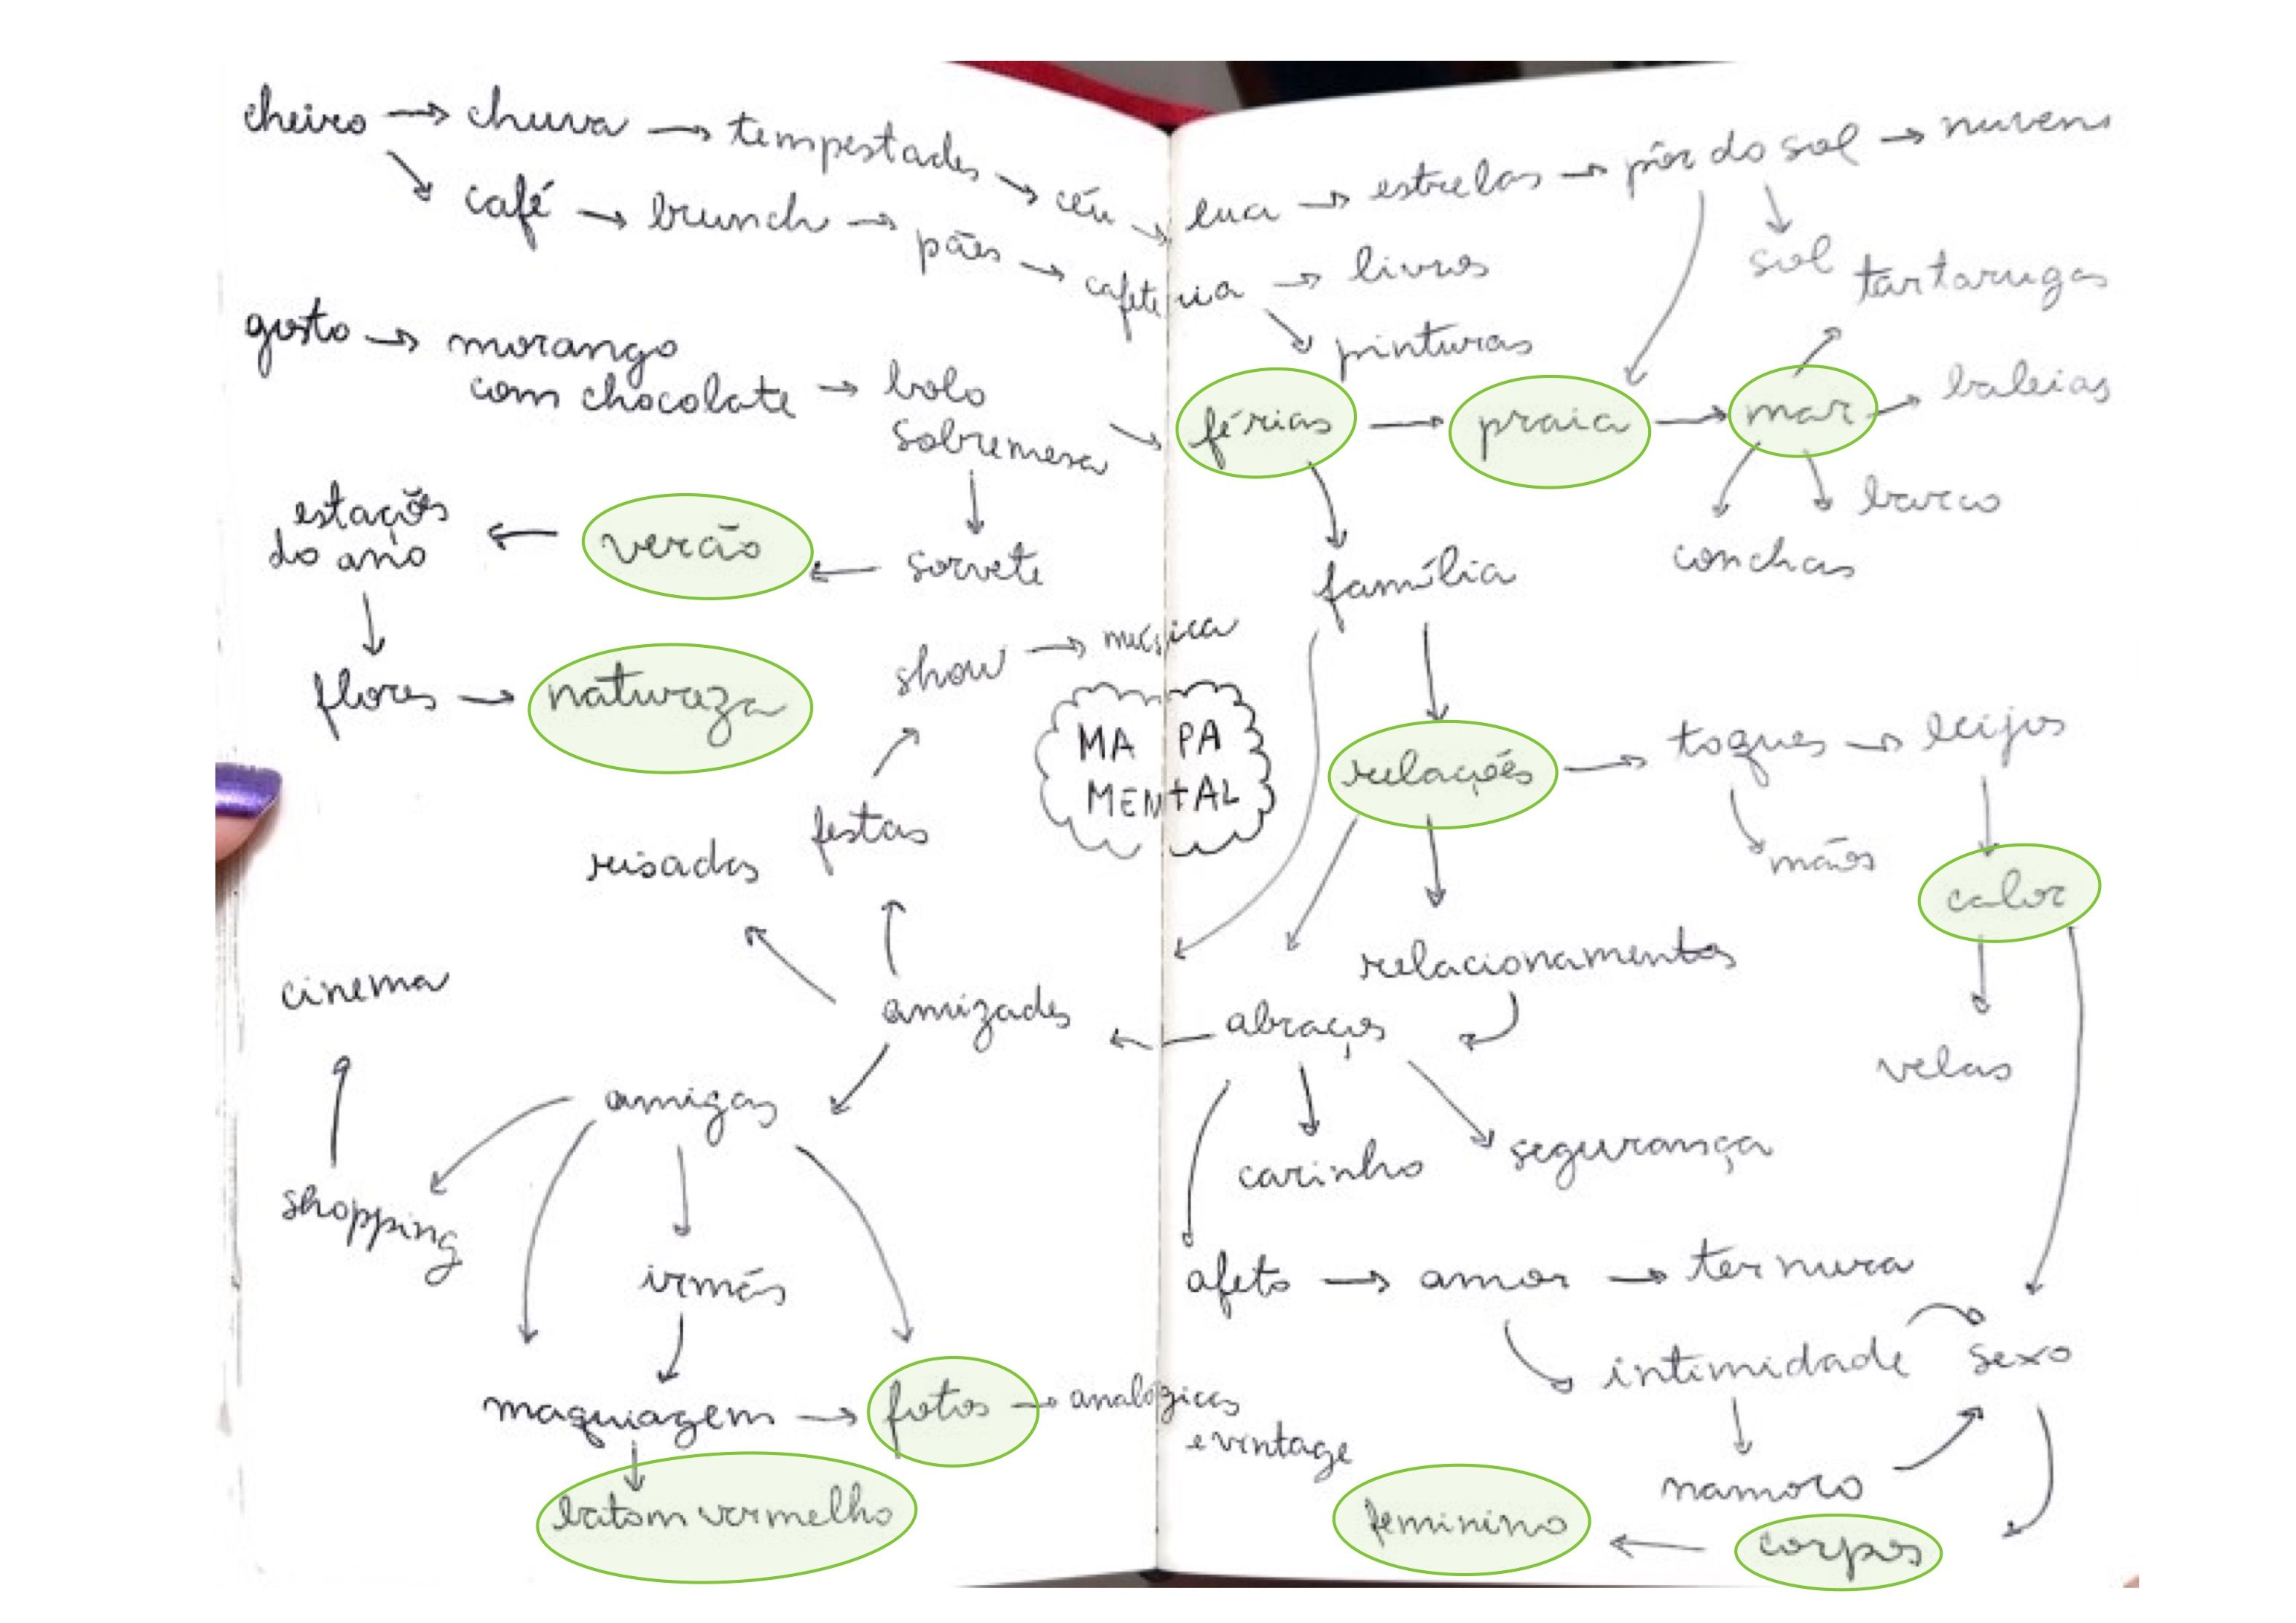 cheiro → chuva → tempestades → céu → lua → estrelas → pôr do sol → nuvens
café → brunch → pães → cafeteria → livros
sol
tartarugas
pinturas
gosto → morango
com chocolate → bolo
sobremesa
férias → praia → mar → baleias
barco
conchas
estações
do ano ← verão ← sorvete
família
flores → natureza
show → música
MAPA
MENTAL
relações → toques → beijos
mãos
calor
festas
risadas
cinema
relacionamentos
amizades ← abraços
velas
amigas
carinho
segurança
shopping
irmãs
afeto → amor → ternura
intimidade
sexo
maquiagem → fotos → analógicas
e vintage
namoro
batom vermelho
feminino ← corpos